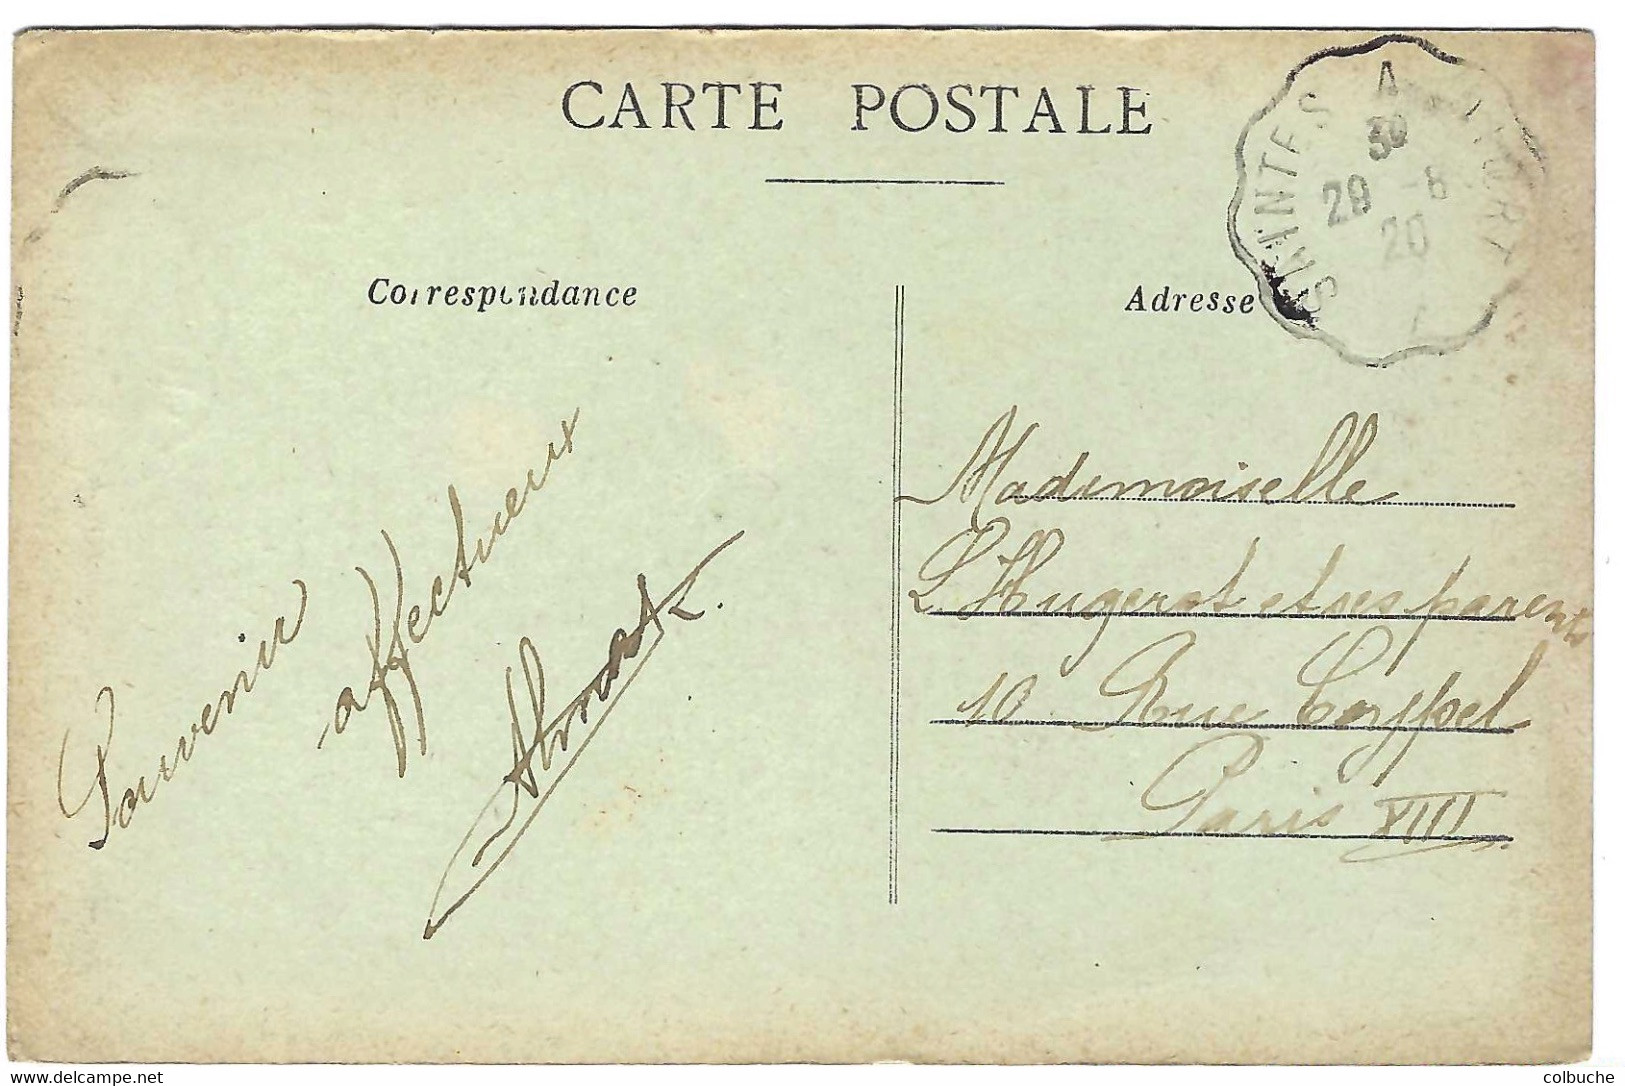 CARTE POSTALE
SAINTES A
30
28 -8
20
Correspondance
Adresse
Souvenir
affectueux
Mademoiselle
L Hugerot et ses parents
10 Rue Coyppel
Paris XIII
www.delcampe.net
colbuche